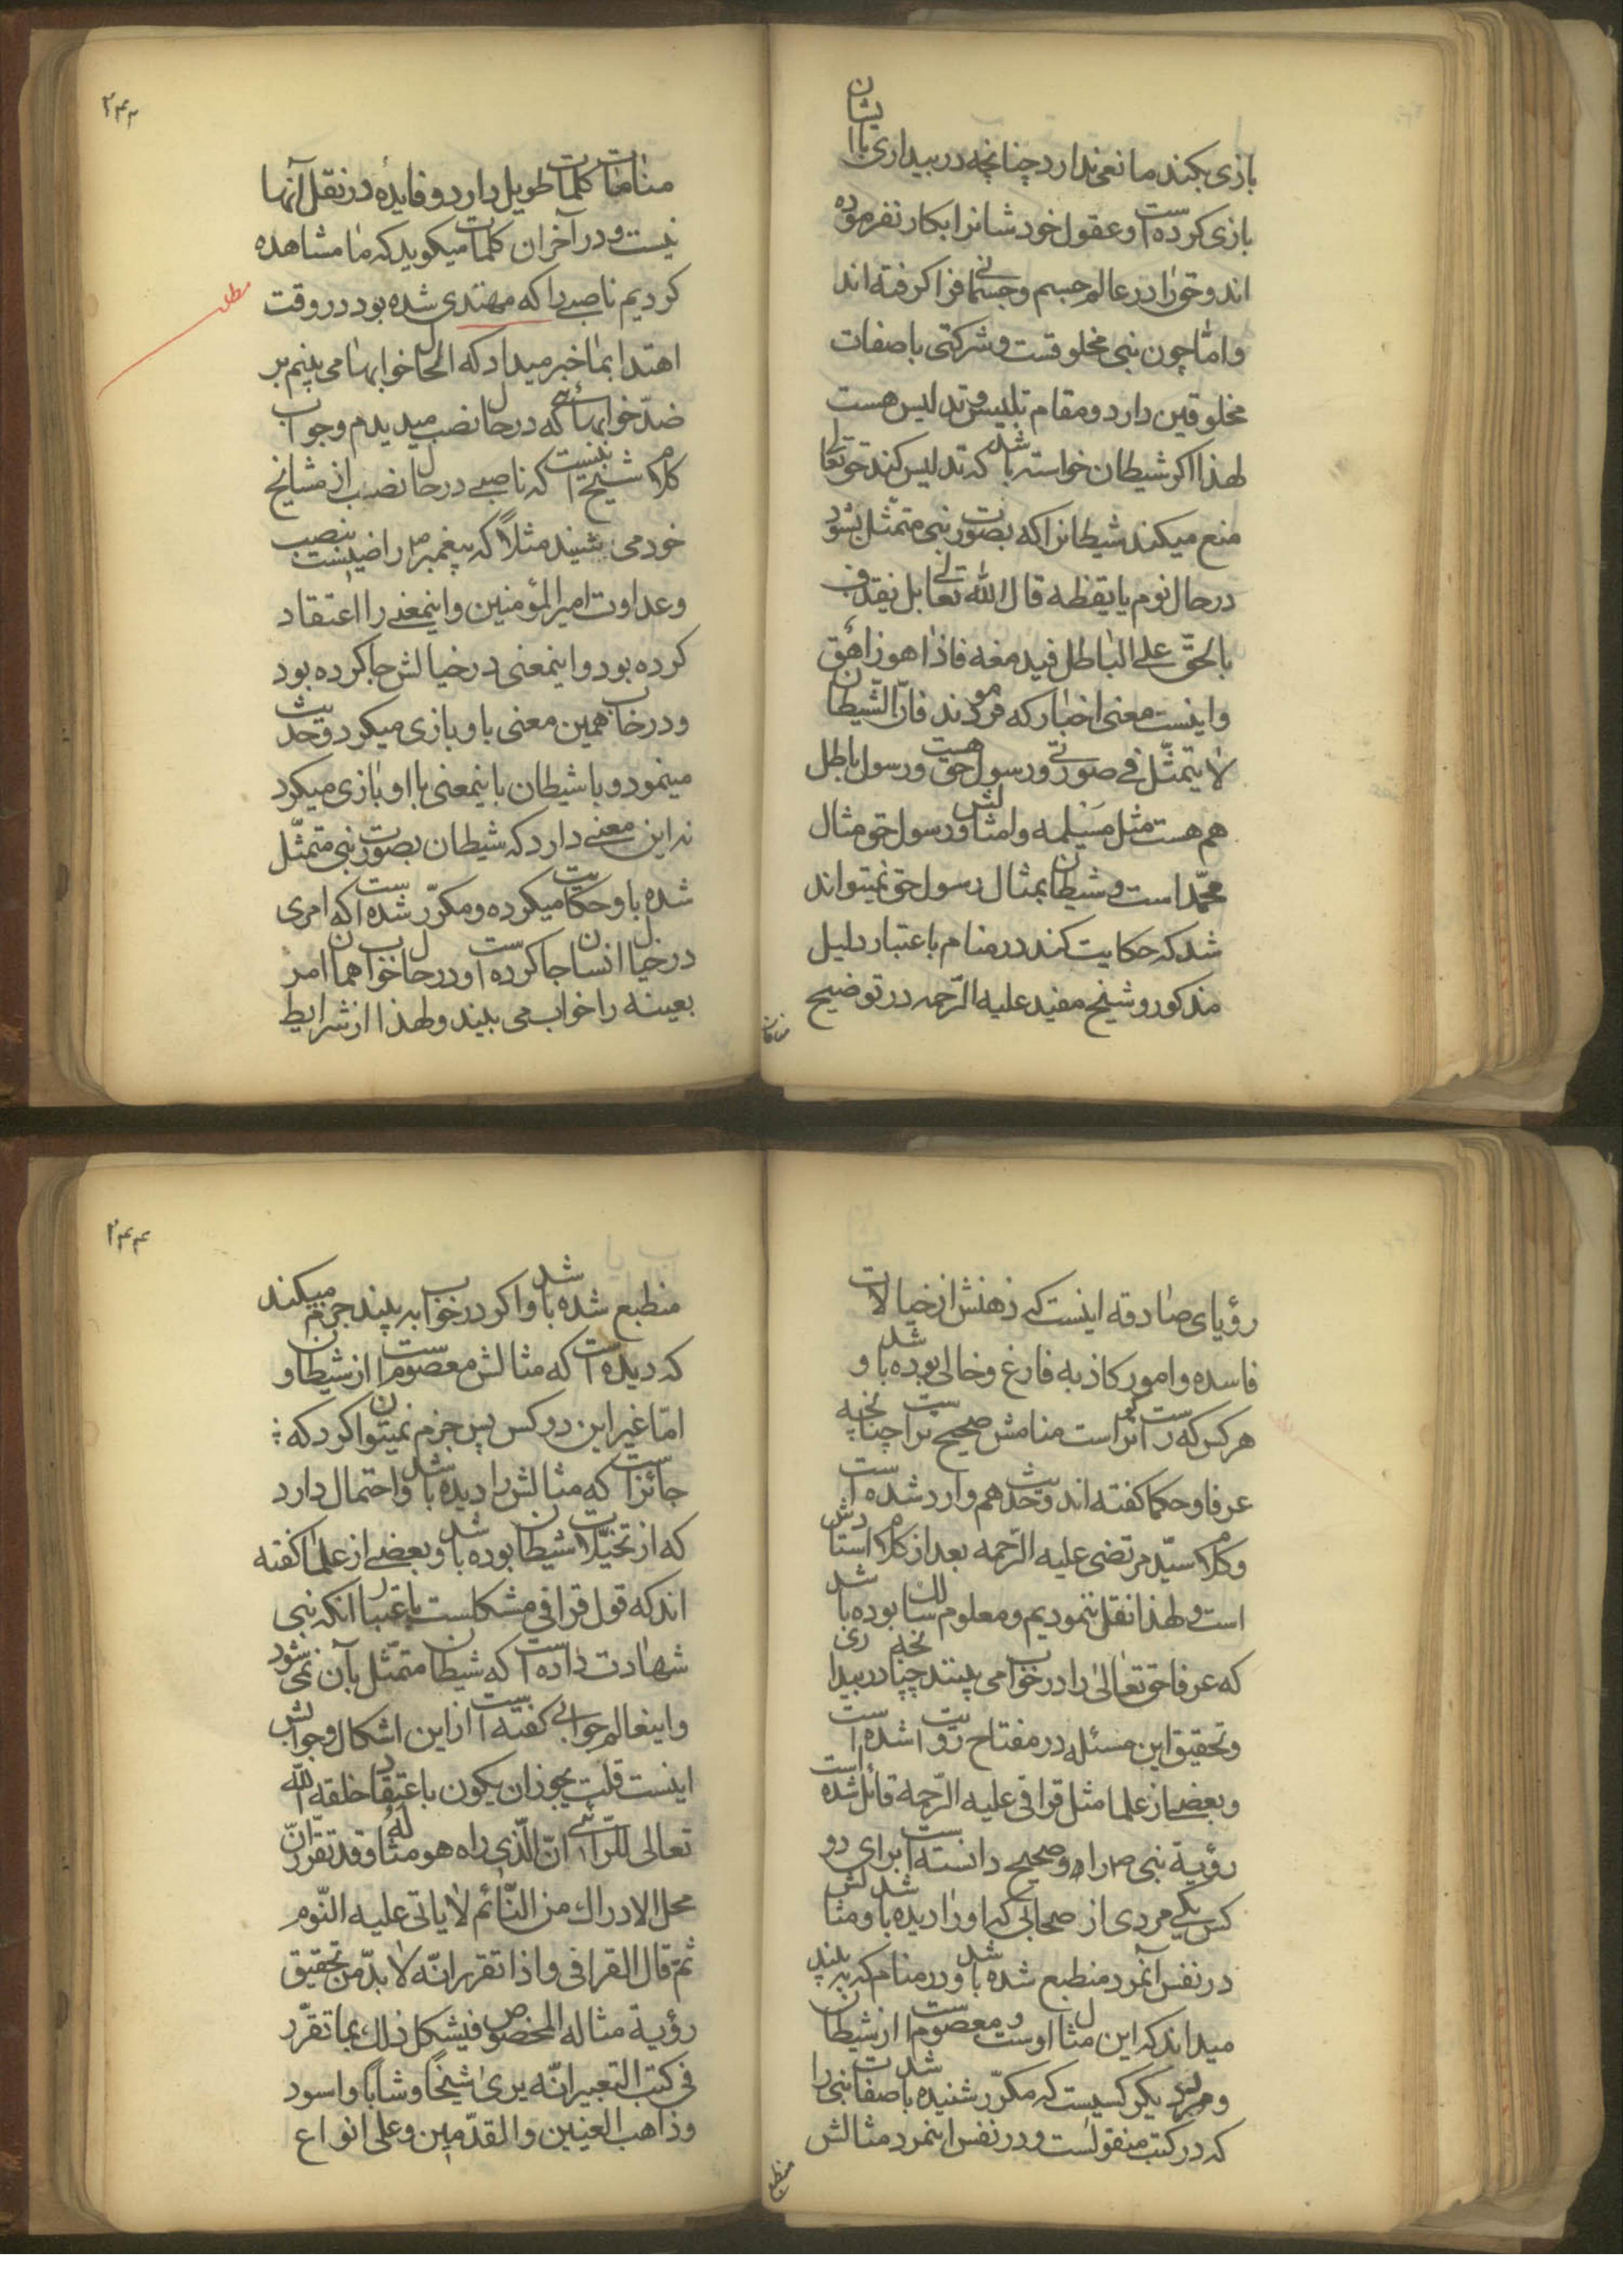 بازی بکند مانعی ندارد چنانچه در بیداری با ایشان
بازی کرده است و عقول خودشانرا بکار نفرموده
اند و حق را در عالم جسم و جسمانی فرا گرفته اند
و امّا چون نبی مخلوقست و شرکتی با صفات
مخلوقین دارد و مقام تلبیس و تدلیس هست
لهذا اکر شیطان خواسته باشد که تدلیس کند حق تعالی
منع میکند شیطانرا که بصورت نبی متمثّل بشود
در حال نوم یا یقظه قال اللّه تعالی بل نقذف
بالحقّ علی الباطل فیدمغه فاذا هو زاهق
و اینست معنی اخبار که فرمودند فانّ الشیطان
لا یتمثّل فی صورتی و رسول حق هست و رسول باطل
هم هست مثل مسیلمه و امثالش و رسول حق مثال
محمّد است و شیطان بمثال رسول حق نمیتواند
شد که حکایت کند در منام باعتبار دلیل
مذکور و شیخ مفید علیه الرّحمه در توضیح
منامات
۲۴۳
منامات کلمات طویل دارد و فایدهٔ در نقل آنها
نیست و در آخر ان کلمات میکوید که ما مشاهده
کردیم ناصبی را که مهتدی شده بود در وقت
مطلب
اهتدا بما خبر میداد که الحال خوابها می بینم بر
ضدّ خوابهائی که در حال نصب میدیدم و جواب
کلام شیخ اینست که ناصبی در حال نصب از مشایخ
خود می شنید مثلاً که پیغمبر ص راضیست بنصب
و عداوت امیر المؤمنین و اینمعنی را اعتقاد
کرده بود و اینمعنی در خیالش جا کرده بود
و در خواب همین معنی با و بازی میکرد و حدیث
مینمود و یا شیطان باینمعنی با او بازی میکرد
نه این معنی دارد که شیطان بصورت نبی متمثّل
شده باو حکایت میکرده و مکرّر شده است که امری
در خیال انسان جا کرده است و در حال خواب همان امر
بعینه را خواب می بیند و لهذا از شرایط
رؤیای صادقه اینست که ذهنش از خیالات
فاسده و امور کاذبه فارغ و خالی بوده باشد و
هر کس که راست کوتر است منامش صحیح تر است چنانچه
عرفا و حکما کفته اند و حدیث هم وارد شده است
و کلام سیّد مرتضی علیه الرّحمه بعد از کلام استادش
است و لهذا نقل ننمودیم و معلوم سالك بوده باشد
که عرفا حق تعالی را در خواب می بینند چنانچه در بیداری
و تحقیق این مسئله در مفتاح رؤیت شده است
و بعضی از علما مثل قرافی علیه الرّحمه قائل شده است
رؤیة نبی ص را و صحیح دانسته است برای دو
کس یکی مردی از صحابی که او را دیده باشد و مثالش
در نفس آنمرد منطبع شده باشد و در منام که به بیند
میداند که این مثال اوست و معصوم است از شیطان
و مرد دیکر کسیست که مکرّر شنیده باشد صفات نبی را
که در کتب منقولست و در نفس اینمرد مثالش
منطبع
۲۴۴
منطبع شده باشد و اکر در خواب به بیند جزم میکند
که دیده است که مثالش معصوم است از شیطان و
امّا غیر این دو کس پس جزم نمیتوان کرد که
جائز است که مثالش را دیده باشد و احتمال دارد
که از تخیّلات شیطان بوده باشد و بعضی از علما کفته
اند که قول قرافی مشکلست باعتبار انکه نبی
شهادت داده است که شیطان متمثّل بآن نمی شود
و اینعالم جوابی کفته است از این اشکال و جوابش
اینست قلت یجوز ان یکون باعتقاد خلقه اللّه
تعالی للرّائی انّ الّذی راه هو مثاله و قد تقرّر انّ
محل الادراك من النّائم لا یاتی علیه النّوم
ثمّ قال القرافی و اذا تقرر انّه لا بدّ من تحقیق
رؤیة مثاله المخصوص فیشکل ذلك بما تقرّر
فی کتب التعبیر انّه یری شیخاً و شاباً و اسود
و ذاهب العینین و القدمین و علی انواع